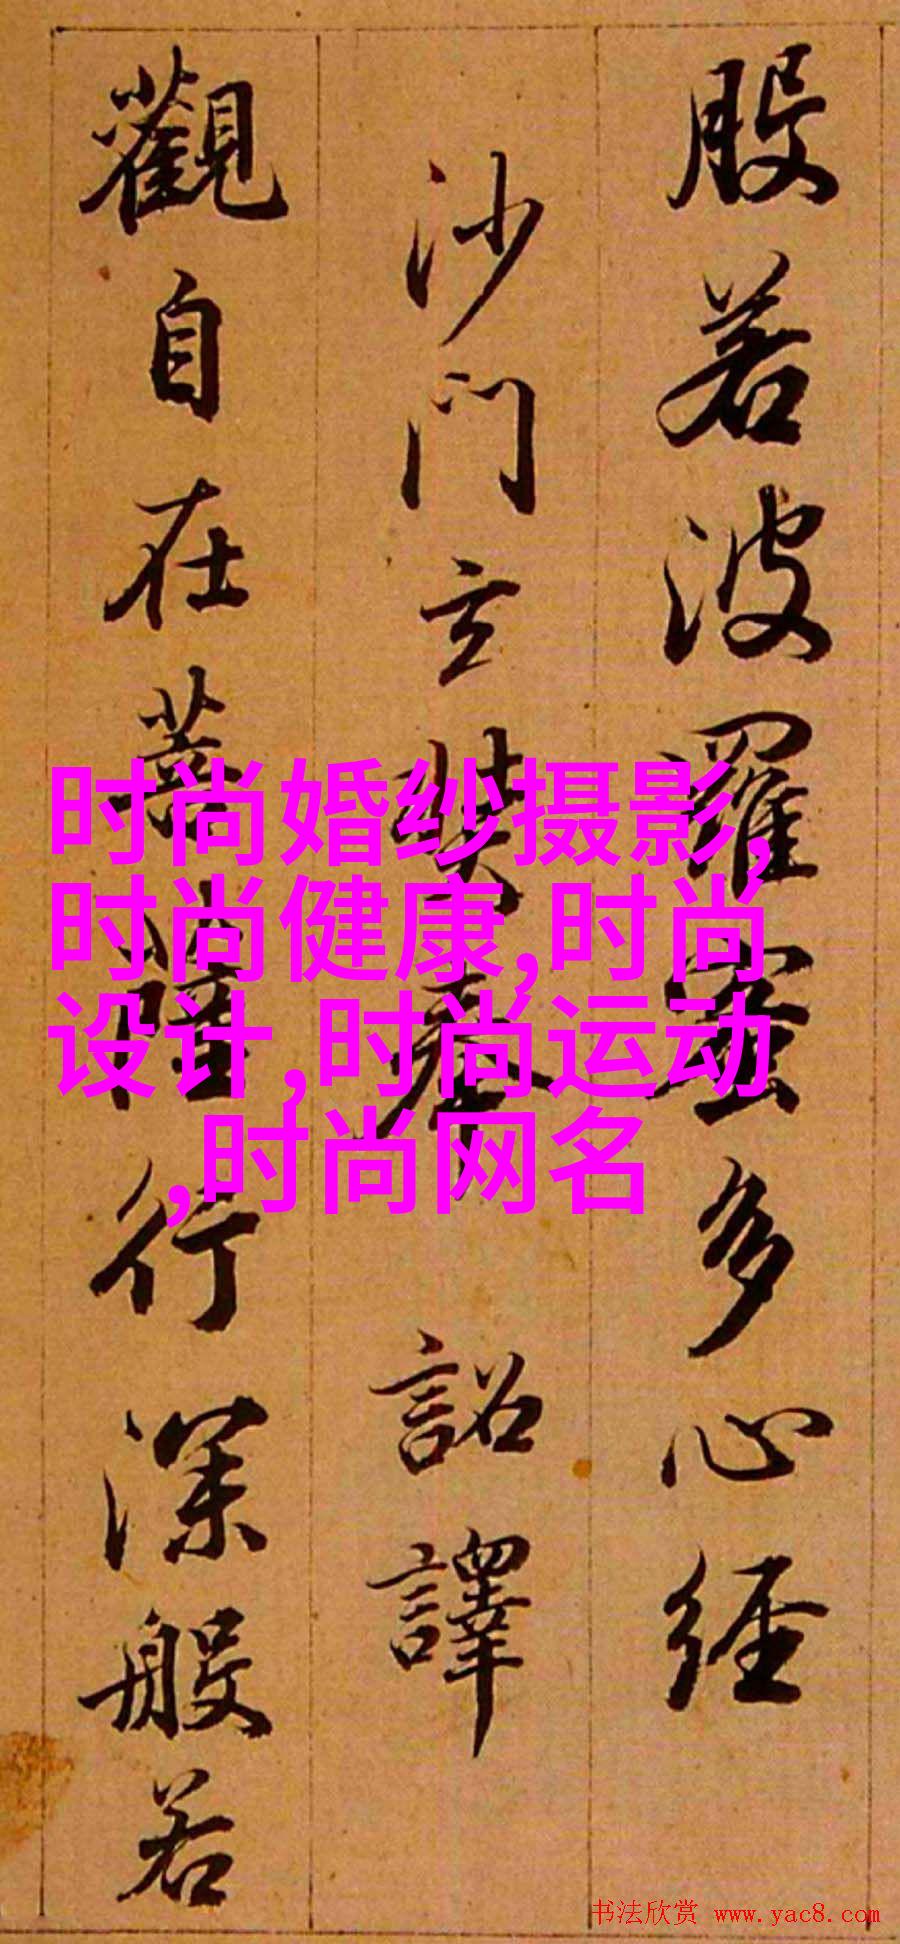 般若波羅蜜多心經
沙門玄奘奉 詔譯
觀自在菩薩行深般若
时尚婚纱摄影,
时尚健康,时尚
设计,时尚运动
,时尚网名
书法欣赏 www.yac8.com